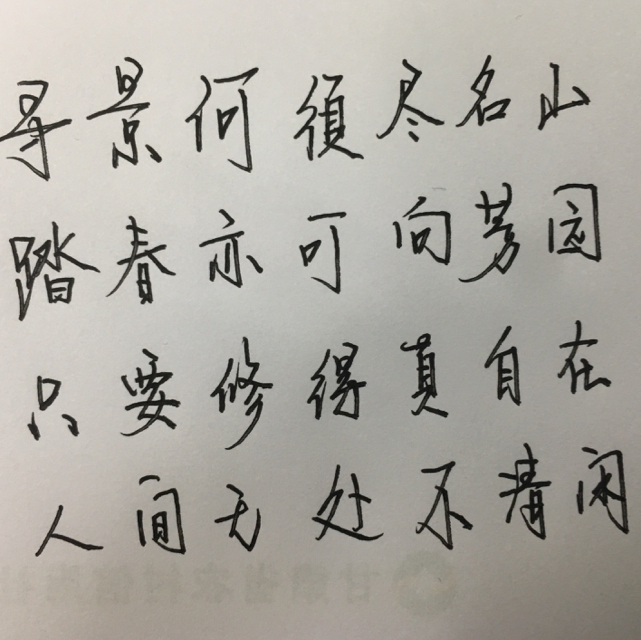 寻景何须尽名山
踏春亦可向芳园
只要修得真自在
人间无处不清闲